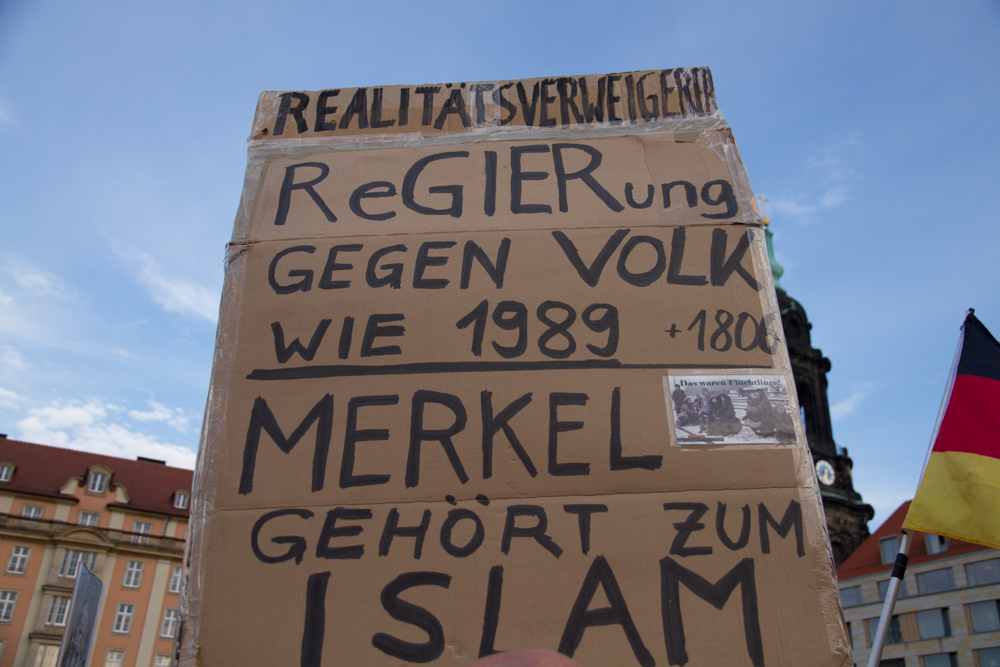 REALITÄTSVERWEIGERER
ReGIERung
GEGEN VOLK
WIE 1989 +1806
Das waren Flüchtlinge!
MERKEL
GEHÖRT ZUM
ISLAM